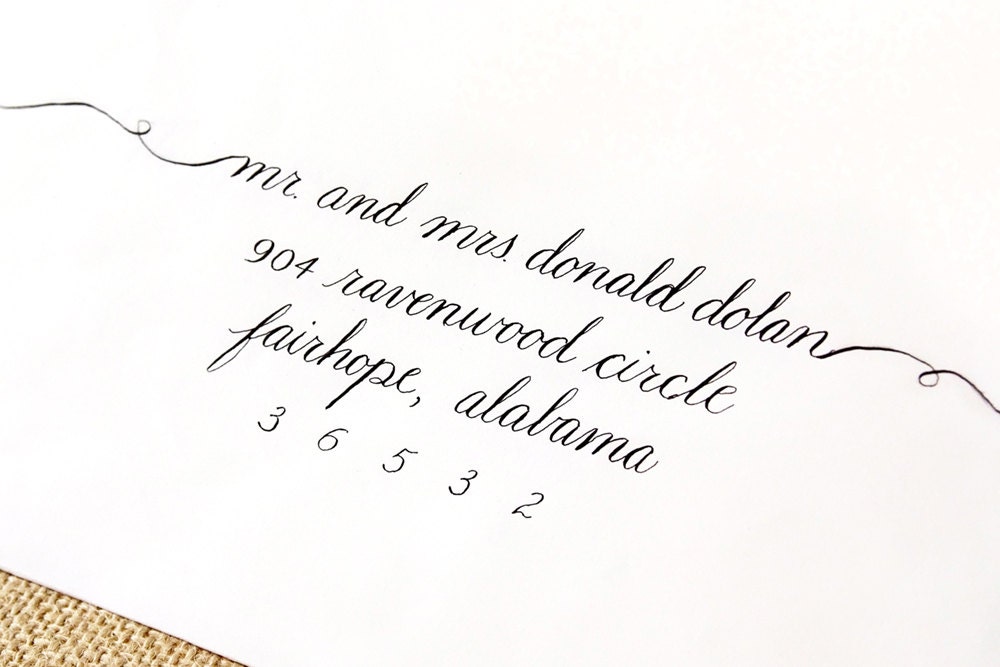 mr. and mrs. donald dolan
904 ravenwood circle
fairhope, alabama
3 6 5 3 2